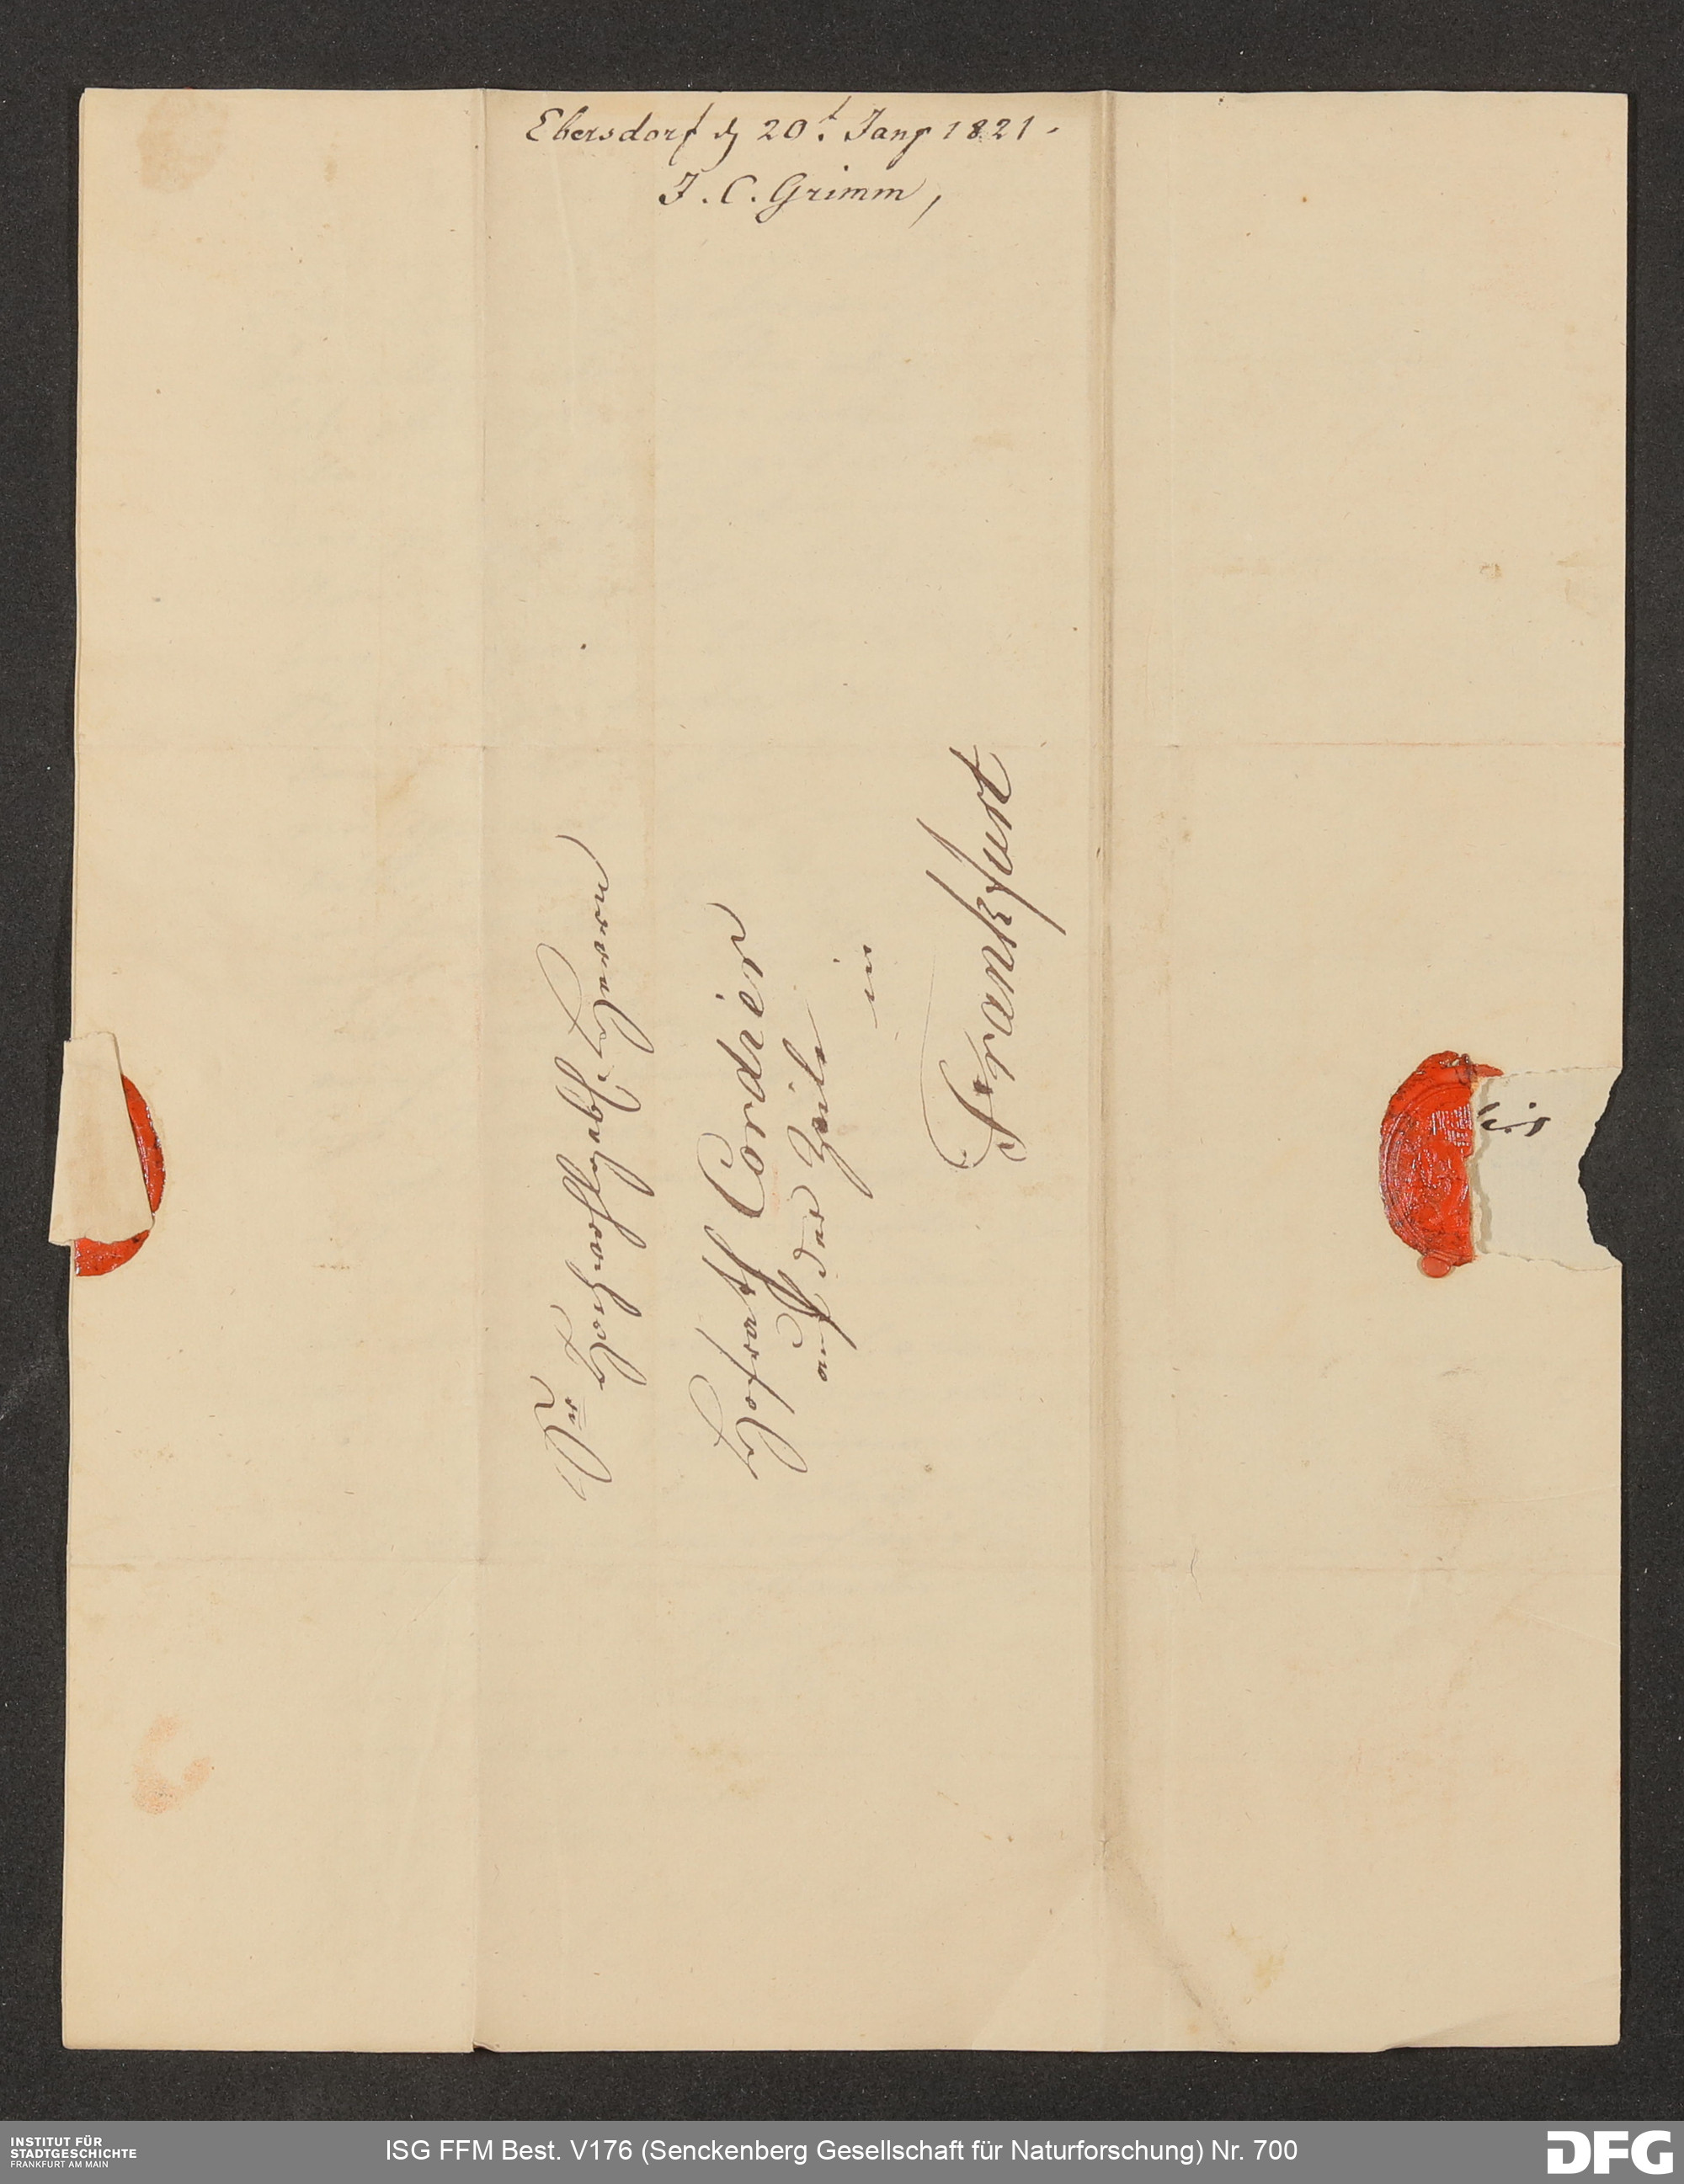 Ebersdorf d 20t Jan 1821.
J. C. Grimm,
Sr
Hochwohlgeb. Herrn
Hofrath Cordier
auf der Zeile
in
Frankfurt
INSTITUT FÜR
STADTGESCHICHTE
FRANKFURT AM MAIN
ISG FFM Best. V176 (Senckenberg Gesellschaft für Naturforschung) Nr. 700
DFG